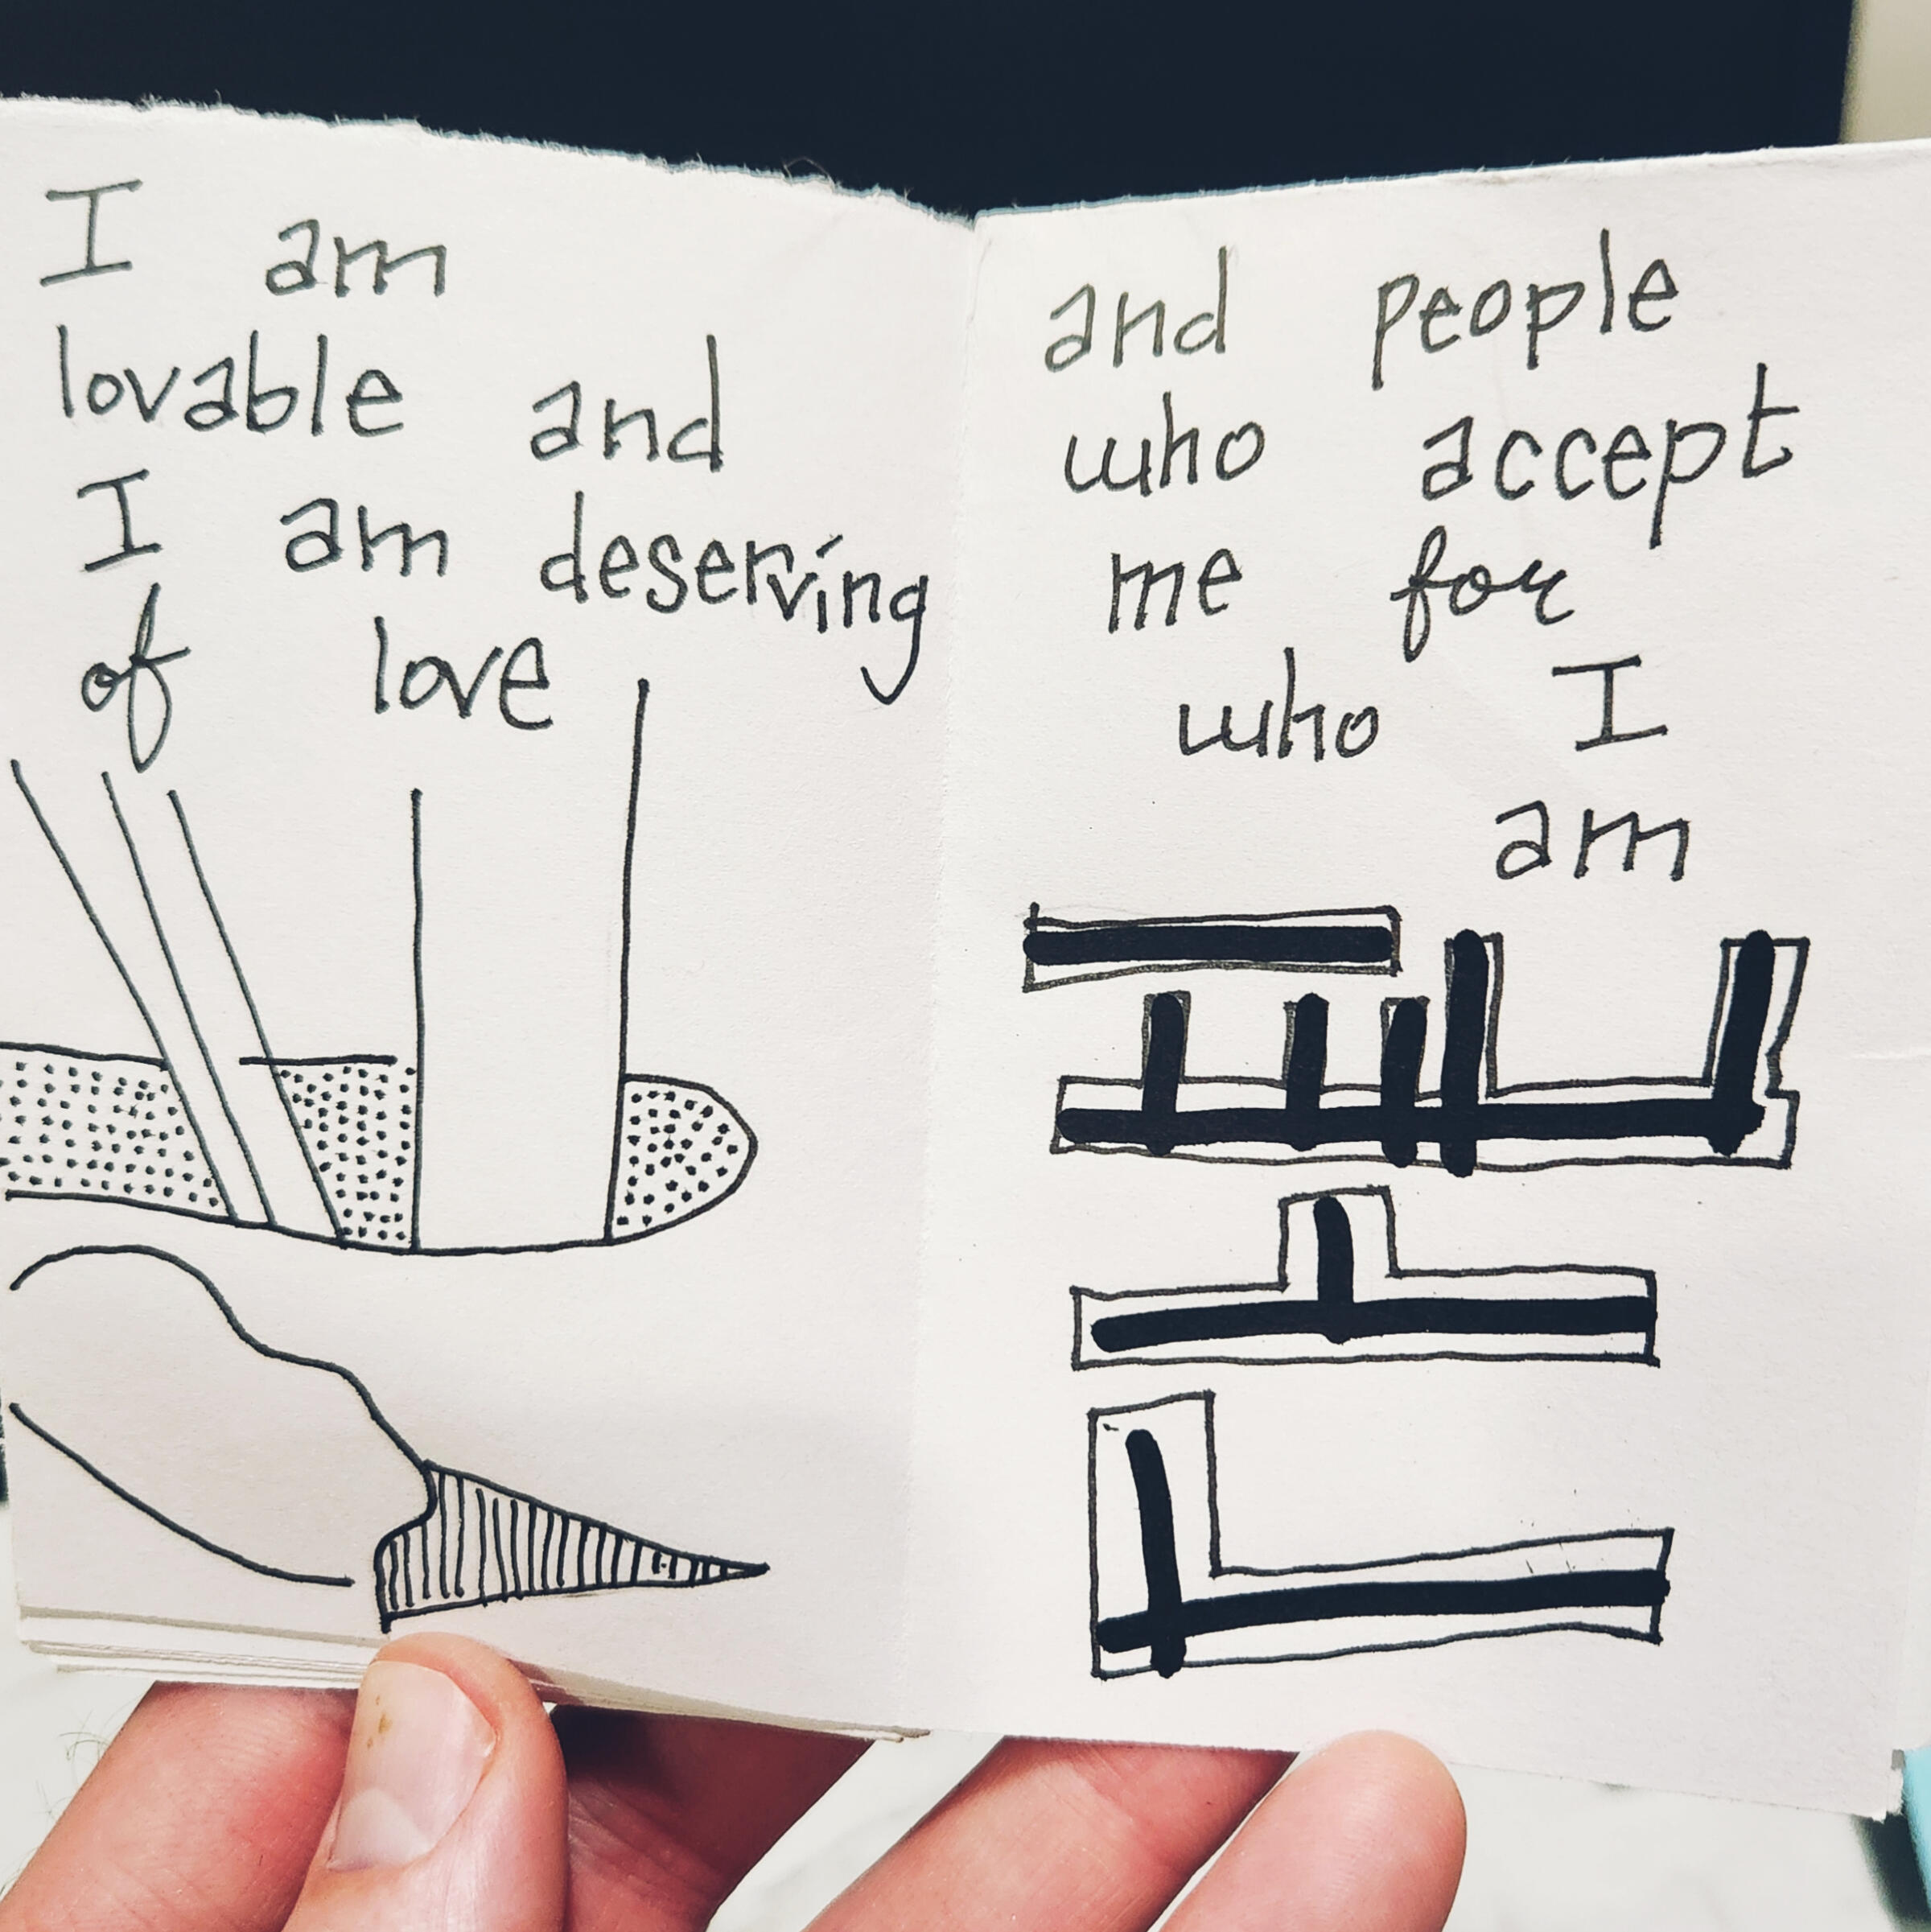 I am
lovable and
I am deserving
of love
and people
who accept
me for
who I
am